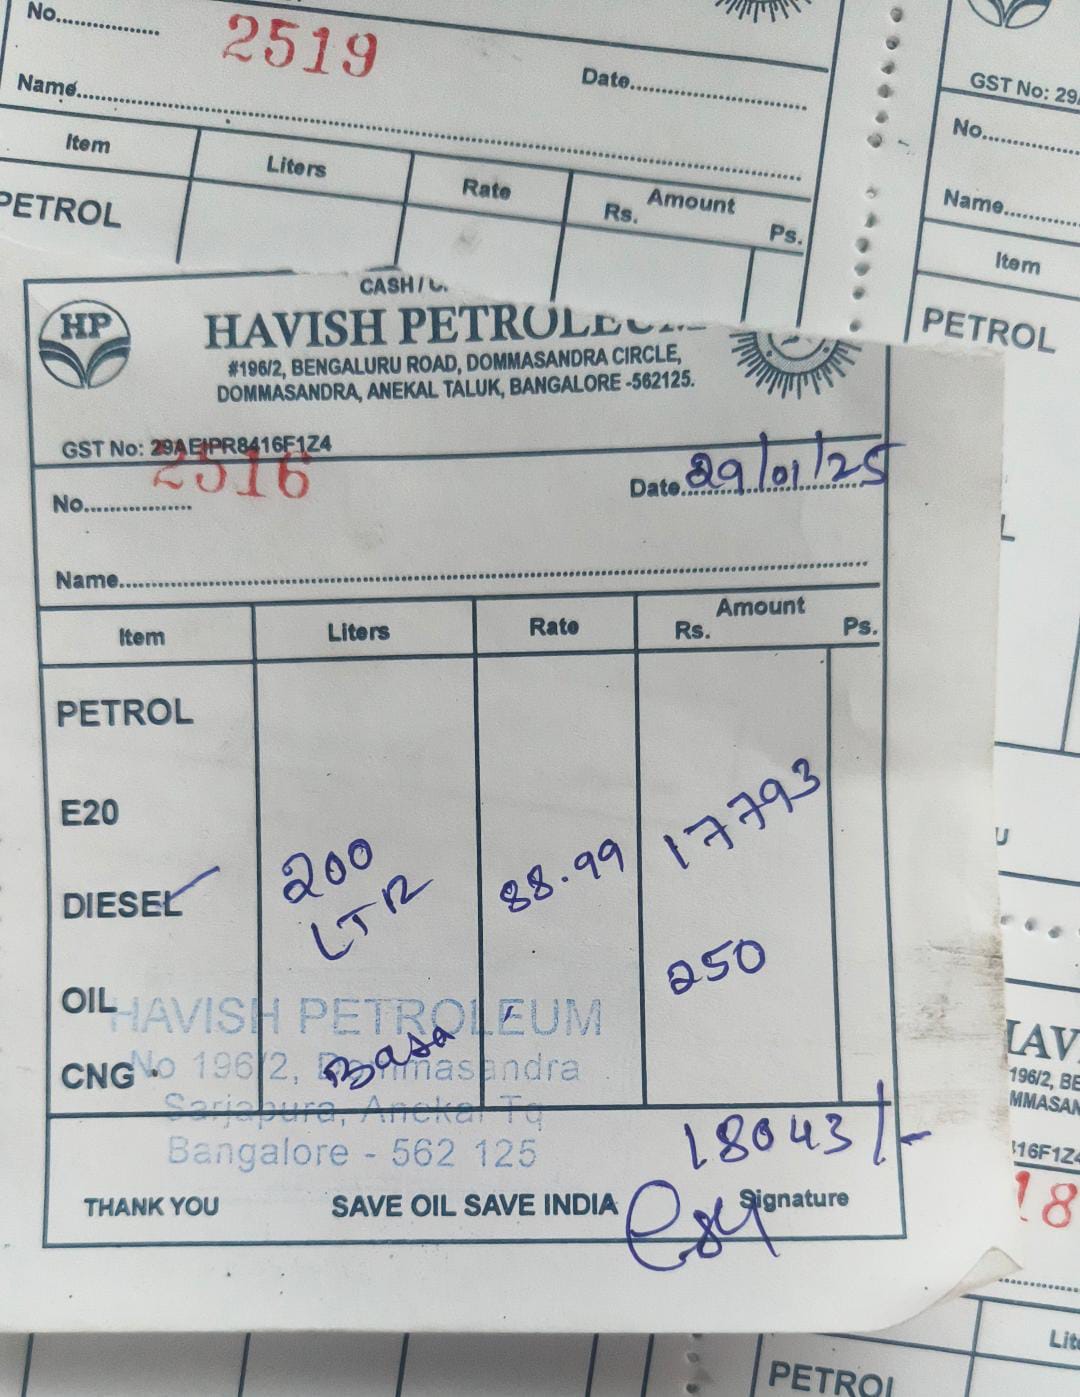 No.
2519
Date
Name
Item Liters Rate Amount
Rs. Ps.
PETROL
GST No: 29
No.
Name
Item
PETROL
CASH /
HP
HAVISH PETROLEUM
#196/2, BENGALURU ROAD, DOMMASANDRA CIRCLE,
DOMMASANDRA, ANEKAL TALUK, BANGALORE -562125.
GST No: 29AEIPR8416F1Z4
No. 2516
Date 29/01/25
Name
Item Liters Rate Amount
Rs. Ps.
PETROL
E20
DIESEL 200 LTR 88.99 17793
OIL 250
CNG
HAVISH PETROLEUM
No 196/2, Dommasandra
Sarjapura, Anekal Tq
Bangalore - 562 125
18043/-
THANK YOU SAVE OIL SAVE INDIA Signature
HAV
196/2, BE
MMASAN
416F1Z4
18
Lite
PETROL